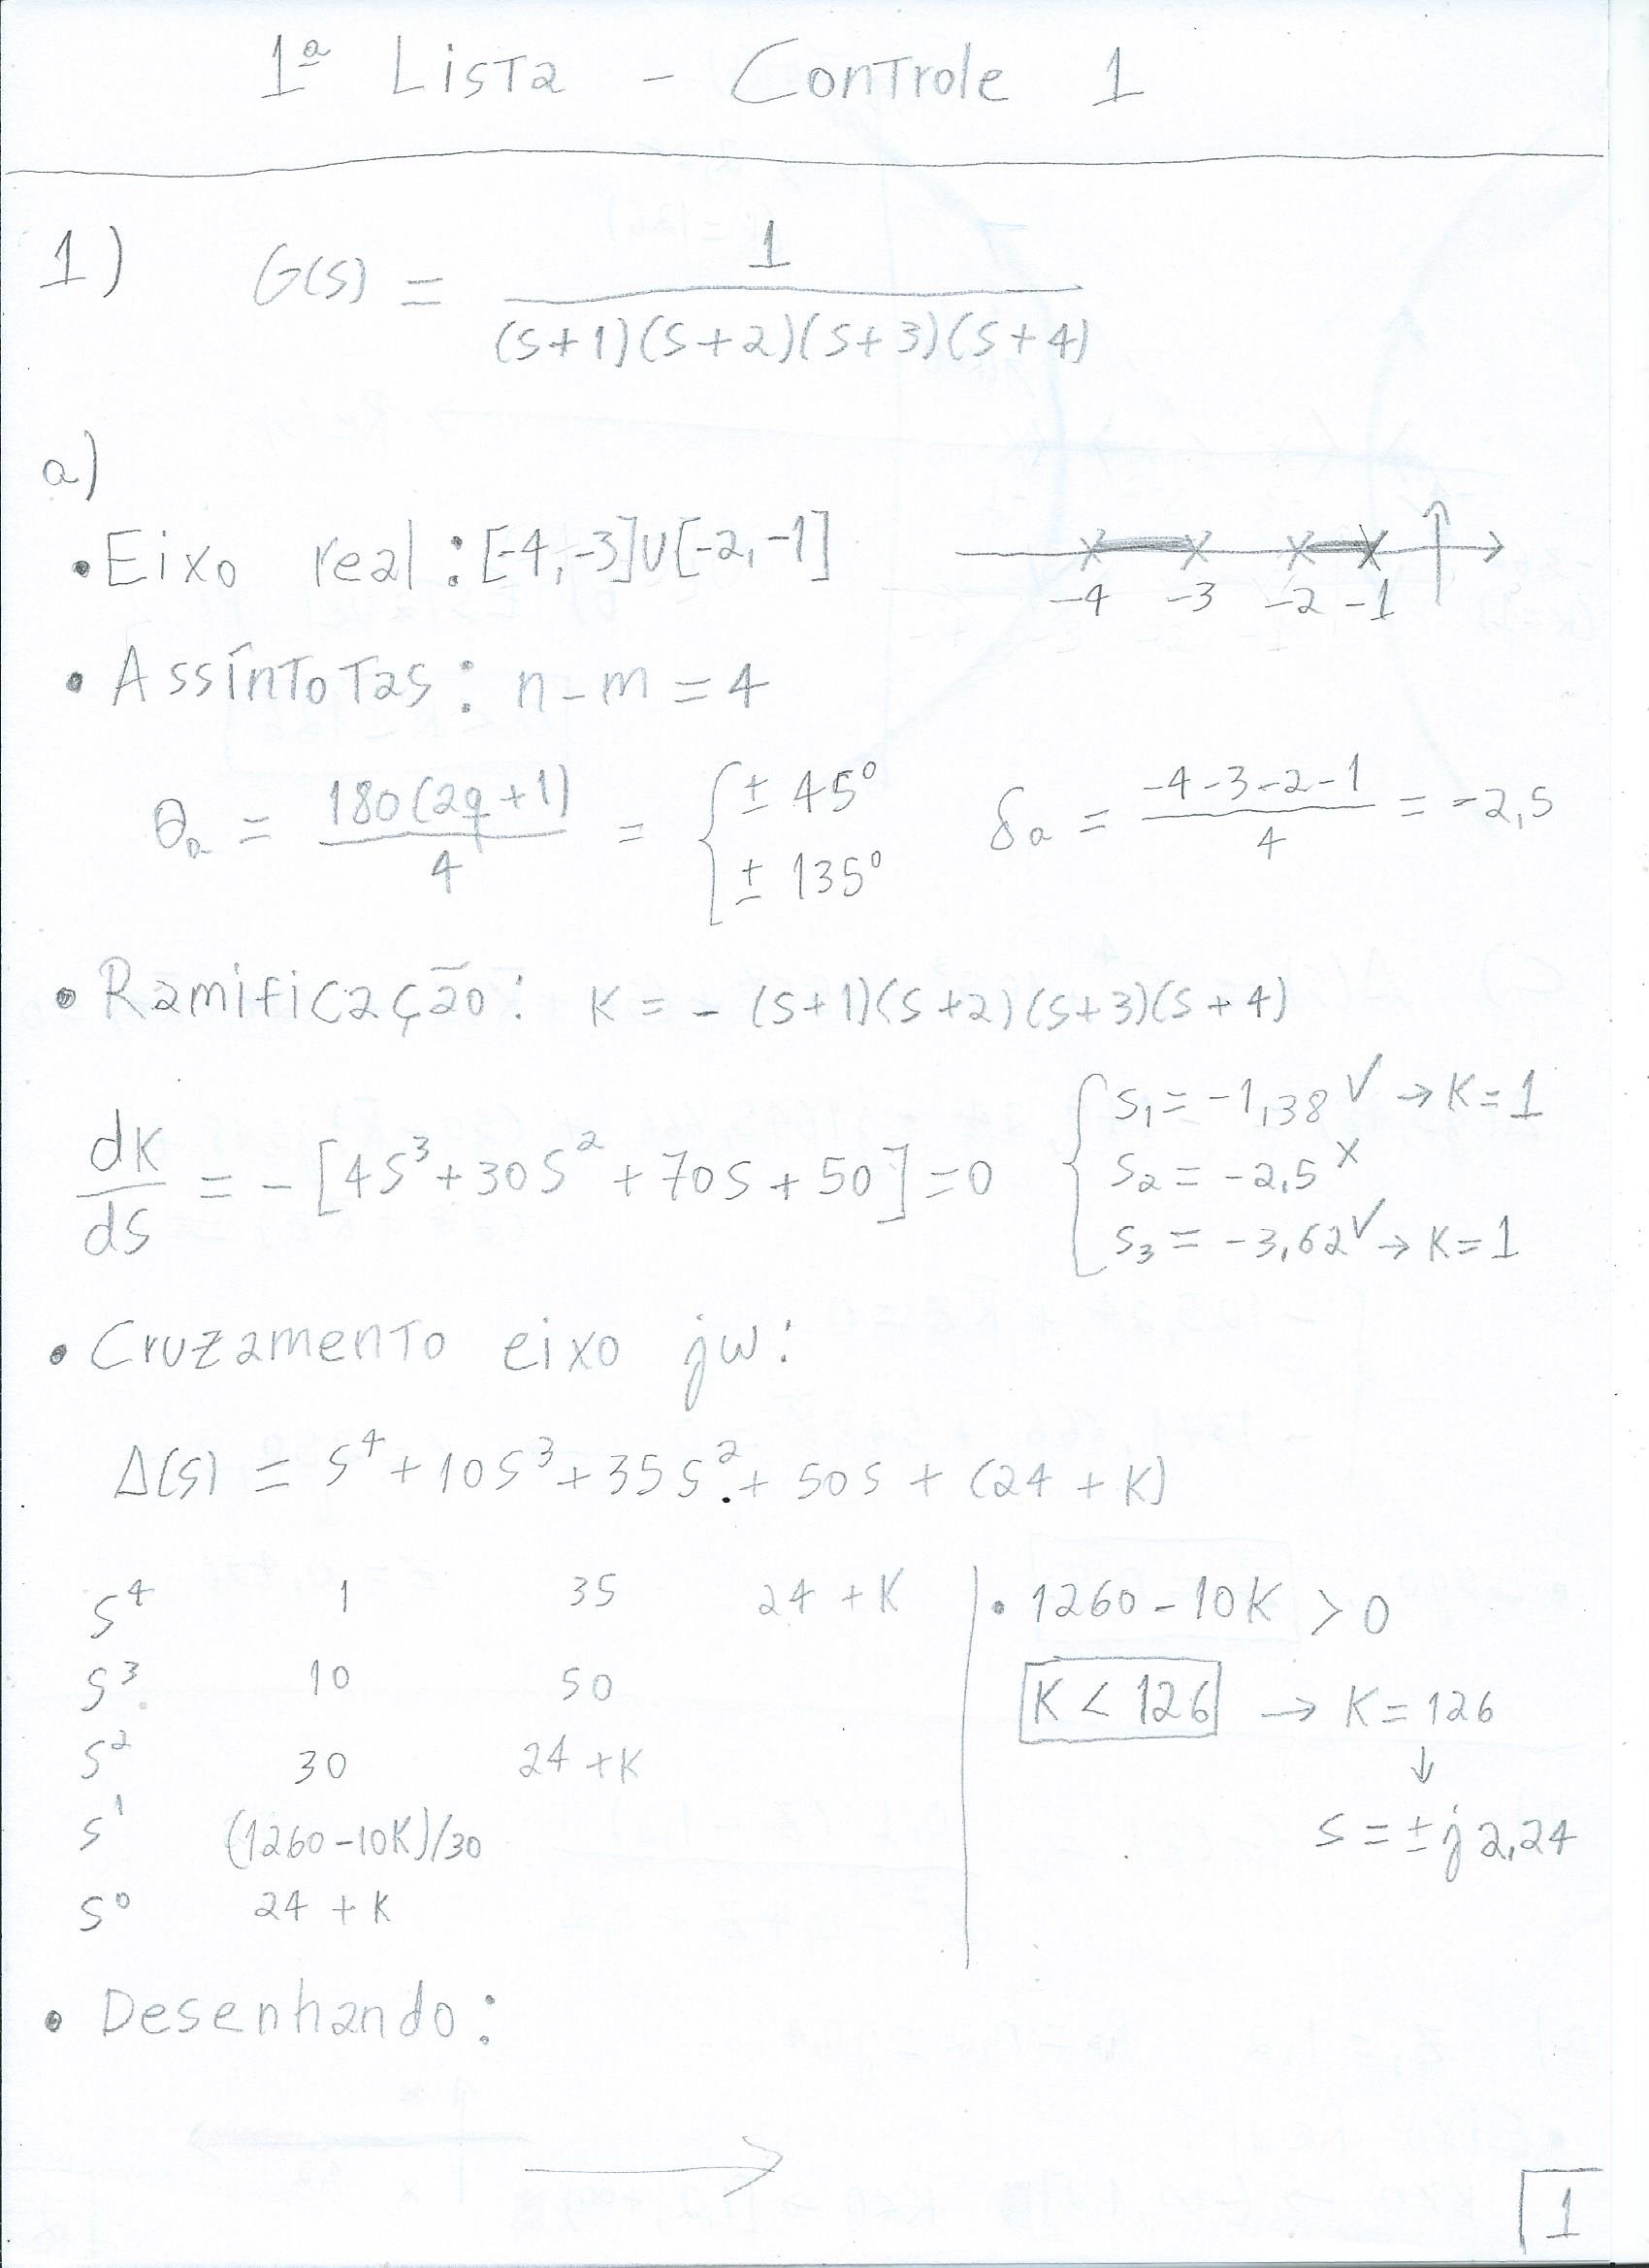 1ª Lista - Controle 1
1) G(s) = 1 / (s+1)(s+2)(s+3)(s+4)
a)
• Eixo real: [-4,-3]U[-2,-1]
-4 -3 -2 -1
• Assíntotas: n-m = 4
θa = 180(2q+1) / 4 = { ± 45° ± 135° δa = -4-3-2-1 / 4 = -2,5
• Ramificação: K = - (s+1)(s+2)(s+3)(s+4)
dK/ds = - [4s³+30s²+70s+50] = 0 { s₁ = -1,38 √ → K=1
s₂ = -2,5 x
s₃ = -3,62 √ → K=1
• Cruzamento eixo jw:
Δ(s) = s⁴+10s³+35s²+50s+(24+K)
s⁴ 1 35 24+K
s³ 10 50
s² 30 24+K
s¹ (1260-10K)/30
s⁰ 24+K
• 1260-10K > 0
K < 126 → K = 126
↓
s = ± j 2,24
• Desenhando:
→
1